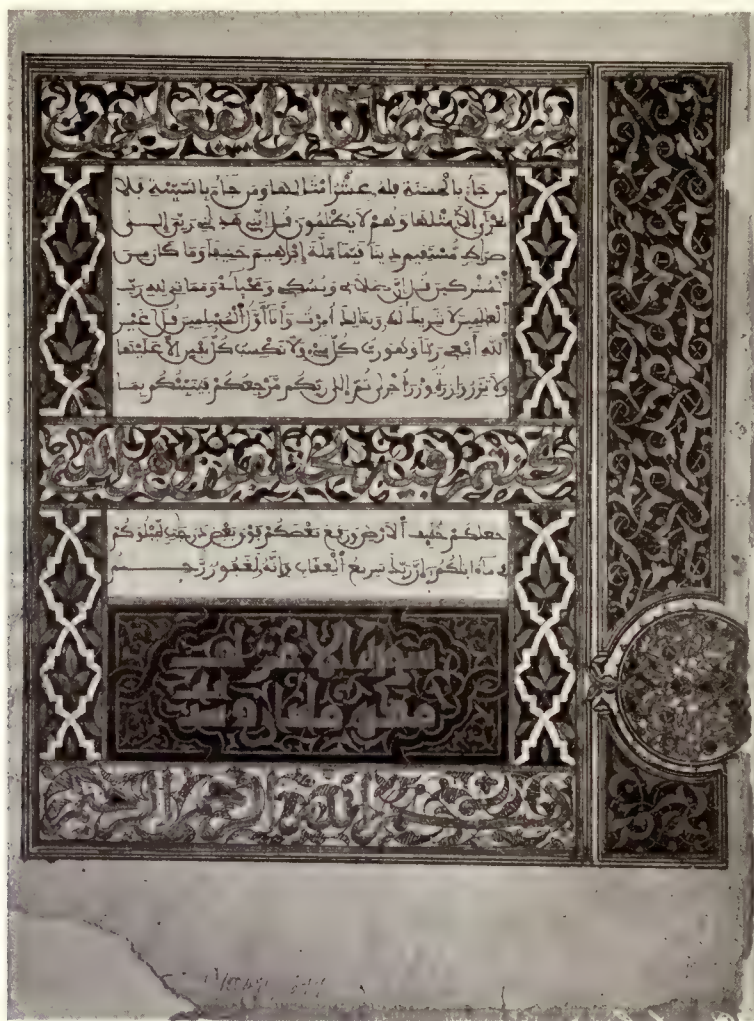 ثم ينبئهم بما كانوا يفعلون
من جاء بالحسنة فله عشر أمثالها ومن جاء بالسيئة فلا
يجزى إلا مثلها وهم لا يظلمون قل إنني هديني ربي إلى
صراط مستقيم دينا قيما ملة إبراهيم حنيفا وما كان من
المشركين قل إن صلاتي ونسكي ومحياي ومماتي لله رب
العلمين لا شريك له وبذلك أمرت وأنا أول المسلمين قل أغير
الله أبغي ربا وهو رب كل شيء ولا تكسب كل نفس إلا عليها
ولا تزر وازرة وزر أخرى ثم إلى ربكم مرجعكم فينبئكم بما
كنتم فيه تختلفون وهو الذي
جعلكم خلئف الأرض ورفع بعضكم فوق بعض درجت ليبلوكم
في ما ءاتيكم إن ربك سريع العقاب وإنه لغفور رحيم
سورة الاعراف
مكية
بسم الله الرحمن الرحيم